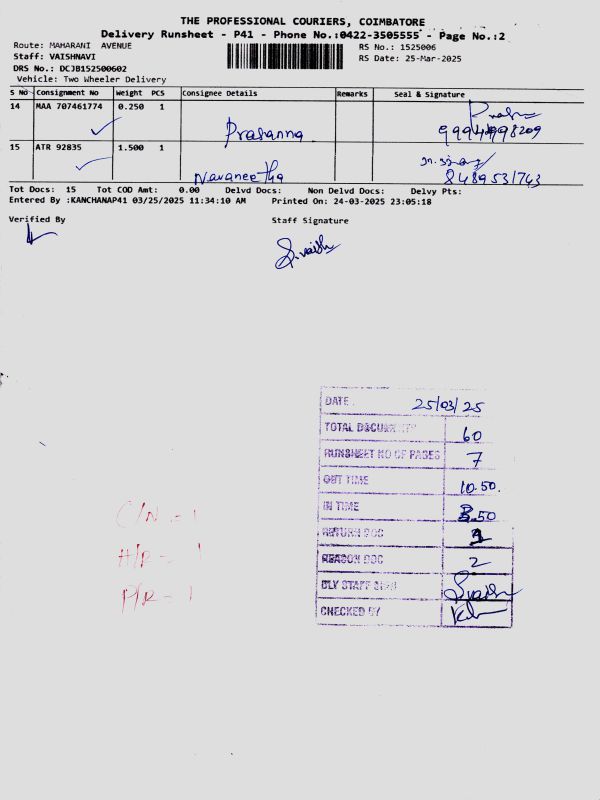 THE PROFESSIONAL COURIERS, COIMBATORE
Delivery Runsheet - P41 - Phone No.:0422-3505555 - Page No.:2
Route: MAHARANI AVENUE
RS No.: 1525006
Staff: VAISHNAVI
RS Date: 25-Mar-2025
DRS No.: DCJB152500602
Vehicle: Two Wheeler Delivery
S No Consignment No Weight PCS Consignee Details Remarks Seal & Signature
14 MAA 707461774 0.250 1
Prasanna
15 ATR 92835 1.500 1
Navaneetha 8489531743
Tot Docs: 15 Tot COD Amt: 0.00 Delvd Docs: Non Delvd Docs: Delvy Pts:
Entered By :KANCHANAP41 03/25/2025 11:34:10 AM Printed On: 24-03-2025 23:05:18
Verified By Staff Signature
S.vaish
DATE 25/03/25
TOTAL DOCUMENTS 60
RUNSHEET NO OF PAGES 7
OUT TIME 10.50.
IN TIME 3.50
RETURN DOC
REASON DOC 2
DLY STAFF SIGN
CHECKED BY
C/N - 1
H/R - 1
P/R - 1